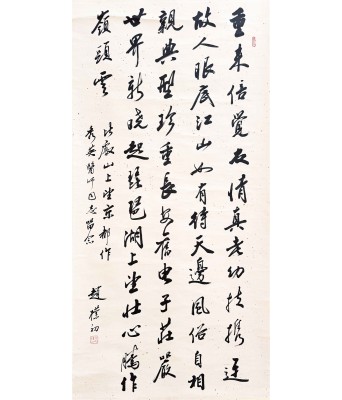 重來倍覺友情真老幼扶携迎
故人眼底江山如有待天邊風俗自相
親典型珍重長安舊子莊嚴
世界新曉起琵琶湖上望壯心騰作
嶺頭雲
比叡山上望京都作
秀英醫師同志留念
趙樸初